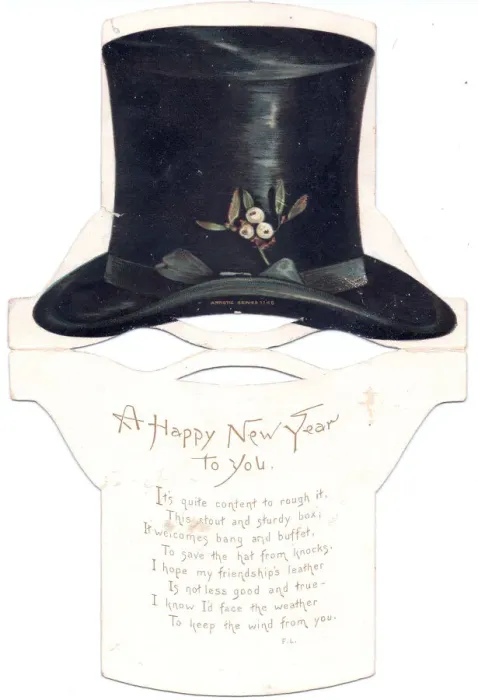 ARTISTIC SERIES 1746
A Happy New Year
To You.
It's quite content to rough it,
This stout and sturdy box;
It welcomes bang and buffet,
To save the hat from knocks.
I hope my friendship's leather
Is not less good and true-
I know I'd face the weather
To keep the wind from you.
F.L.